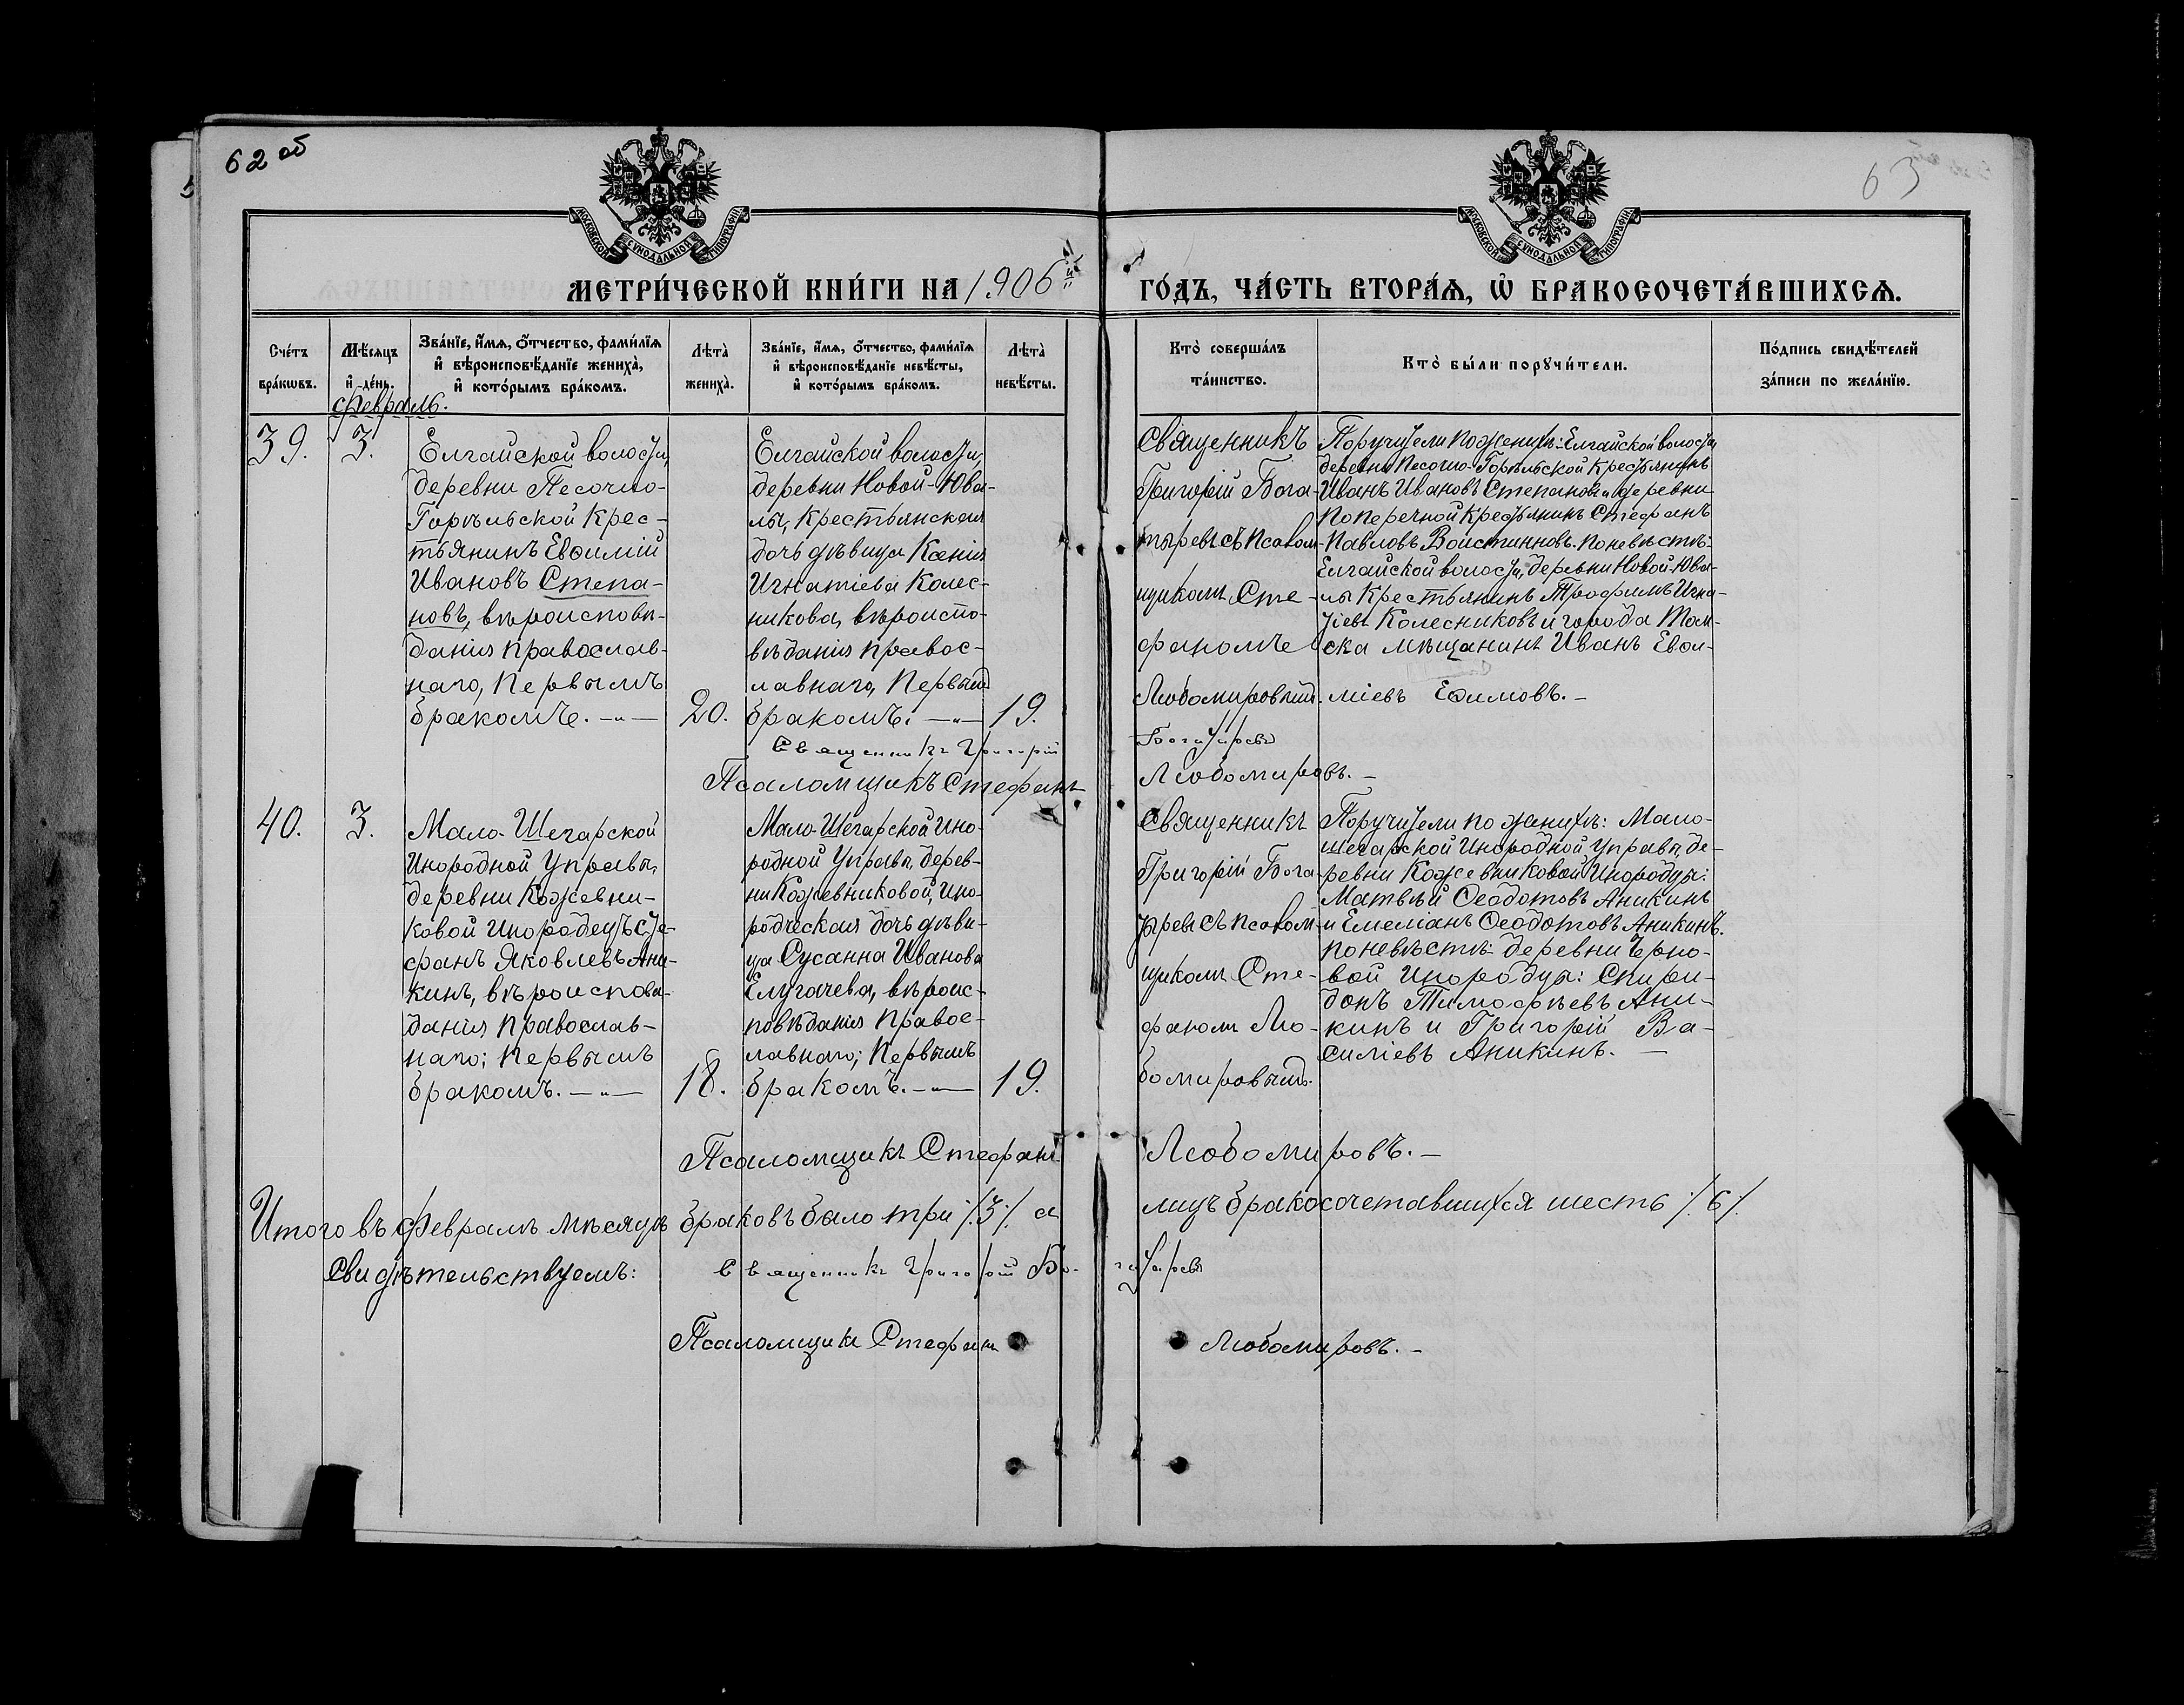 62 об
63
МОСКОВСКОЙ СѴНОДАЛЬНОЙ ТИПОГРАФІИ
МОСКОВСКОЙ СѴНОДАЛЬНОЙ ТИПОГРАФІИ
МЕТРИ́ЧЕСКОЙ КНИ́ГИ НА 1906й ГО́ДЪ, ЧА́СТЬ ВТОРА́Я, Ѡ БРАКОСОЧЕТА́ВШИХСЯ.
Сче́тъ
бра́кѡвъ.
Мѣ́сяцъ
и҆ де́нь.
Зва́нїе, и҆́мя, ѻ҆́тчество, фами́лїя
и҆ вѣроисповѣ́данїе жениха̀,
и҆ кото́рымъ бра́комъ.
Лѣта̀
жениха̀.
Зва́нїе, и҆́мя, ѻ҆́тчество, фами́лїя
и҆ вѣроисповѣ́данїе невѣ́сты,
и҆ кото́рымъ бра́комъ.
Лѣта̀
невѣ́сты.
Кто̀ соверша́лъ
та́инство.
Кто̀ бы́ли порꙋчи́тели.
По́дпись свидѣ́телей
за́писи по жела́нїю.
Февраль.
39.
3.
Елгайской волости,
деревни Песочно-
Горѣльской крес-
тьянинъ Евѳимій
Ивановъ Степа-
новъ, вѣроисповѣ-
данія православ-
наго, первымъ
бракомъ. —"—
20.
Елгайской волости,
деревни Новой-Юва-
лы, крестьянская
дочь дѣвица Ксенія
Игнатіева Колес-
никова, вѣроиспо-
вѣданія правос-
лавнаго, первымъ
бракомъ. —"—
19.
Священникъ
Григорій Бога-
тыревъ съ псалом-
щикомъ Сте-
фаномъ
Любомировымъ.
Поручители по женихѣ: Елгайской волости
деревни Песочно-Горѣльской крестьянинъ
Иванъ Ивановъ Степановъ и деревни
Поперечной крестьянинъ Стефанъ
Павловъ Воистинновъ. По невѣстѣ:
Елгайской волости, деревни Новой-Юва-
лы крестьянинъ Трофимъ Игна-
тіевъ Колесниковъ и города Том-
ска мѣщанинъ Иванъ Евѳи-
міевъ Ефимовъ. —
Священникъ Григорій Богатыревъ
Псаломщикъ Стефанъ Любомировъ. —
40.
3.
Мало-Шегарской
Инородной Управы,
деревни Кожевни-
ковой инородецъ Сте-
фанъ Яковлевъ Ани-
кинъ, вѣроисповѣ-
данія православ-
наго; первымъ
бракомъ. —"—
18.
Мало-Шегарской Ино-
родной Управы, дерев-
ни Кожевниковой, ино-
родческая дочь дѣви-
ца Сусанна Иванова
Елугачева, вѣроис-
повѣданія правос-
лавнаго; первымъ
бракомъ. —"—
19.
Священникъ
Григорій Бога-
тыревъ съ псалом-
щикомъ Сте-
фаномъ Лю-
бомировымъ.
Поручители по женихѣ: Мало-
шегарской Инородной Управы, де-
ревни Кожевниковой инородцы:
Матвѣй Ѳеодотовъ Аникинъ
и Емеліанъ Ѳеодотовъ Аникинъ.
по невѣстѣ: деревни Черно-
вой инородцы: Спири-
донъ Тимофѣевъ Ани-
кинъ и Григорій Ва-
силіевъ Аникинъ. —
Псаломщикъ Стефанъ Любомировъ. —
Итого въ Февралѣ мѣсяцѣ браковъ было три ./.3./. а лицъ бракосочетавшихся шесть ./.6./.
Свидѣтельствуемъ: Священникъ Григорій Богатыревъ
Псаломщикъ Стефанъ Любомировъ. —